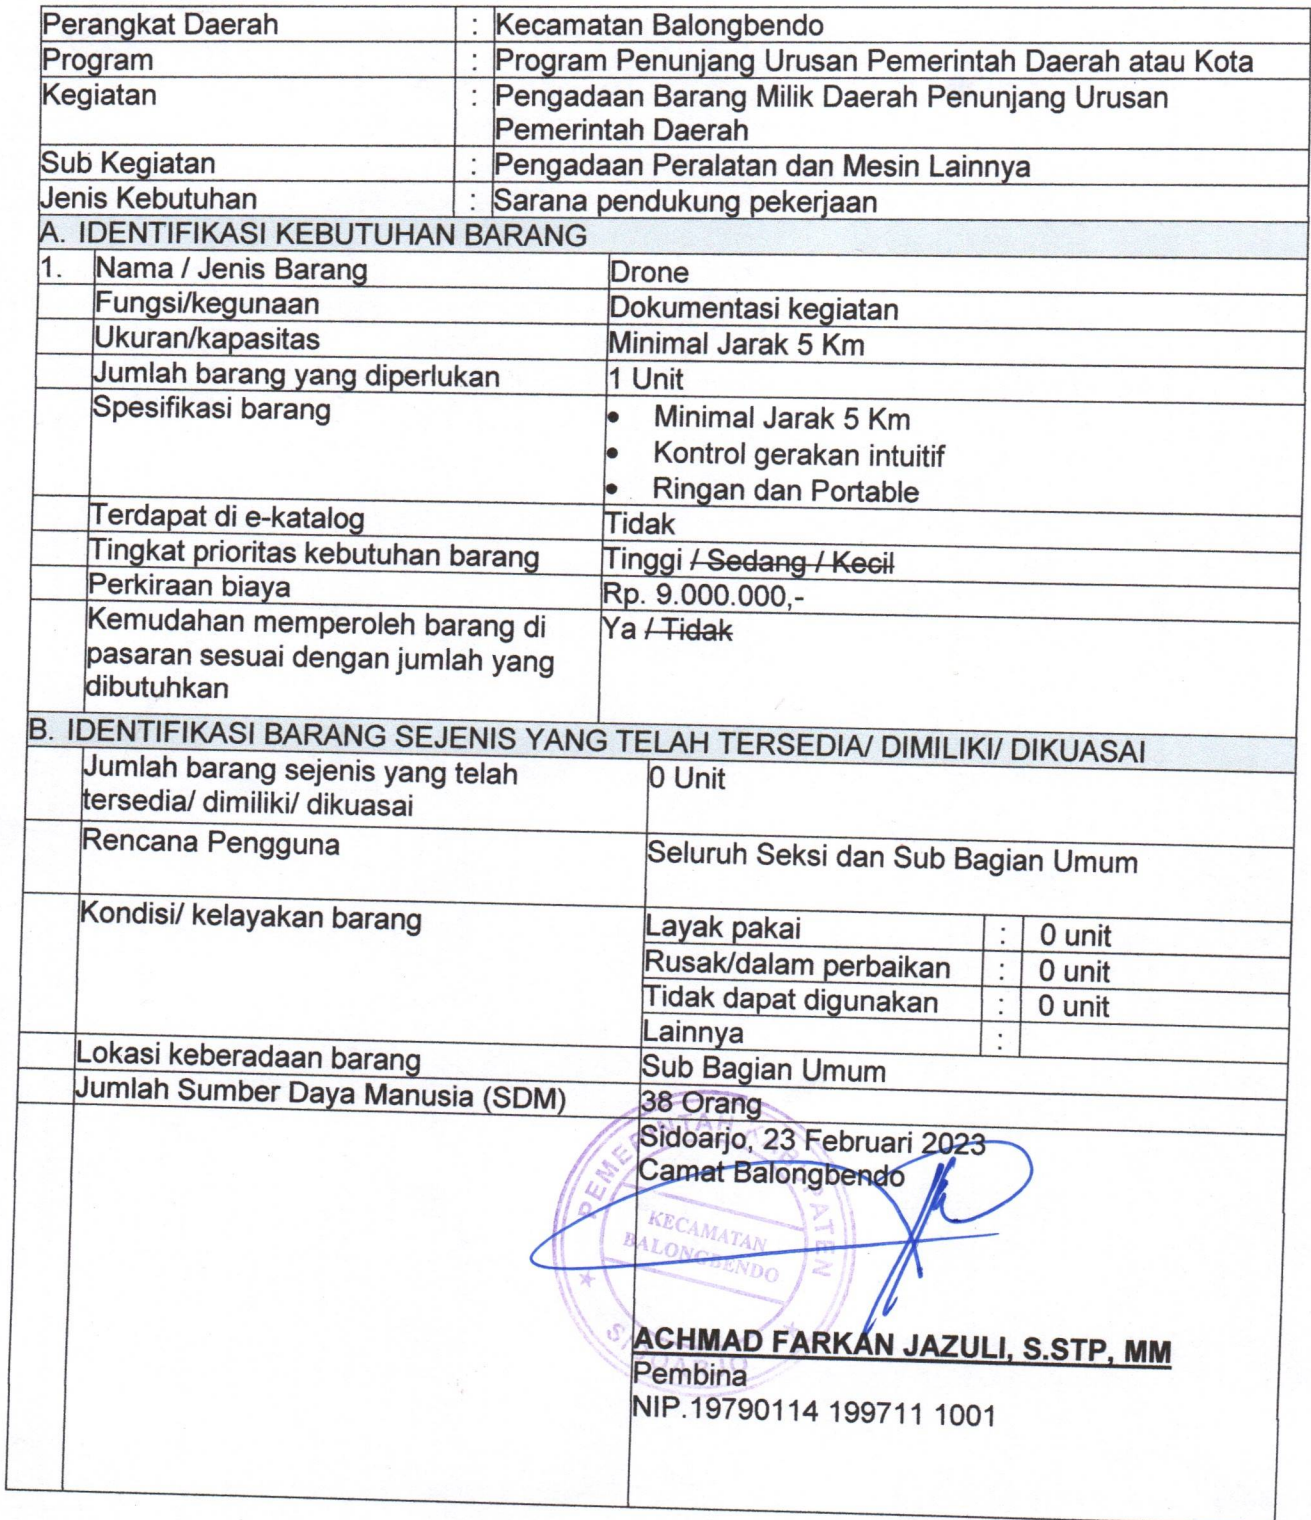 Perangkat Daerah : Kecamatan Balongbendo
Program : Program Penunjang Urusan Pemerintah Daerah atau Kota
Kegiatan : Pengadaan Barang Milik Daerah Penunjang Urusan
Pemerintah Daerah
Sub Kegiatan : Pengadaan Peralatan dan Mesin Lainnya
Jenis Kebutuhan : Sarana pendukung pekerjaan
A. IDENTIFIKASI KEBUTUHAN BARANG
1. Nama / Jenis Barang Drone
Fungsi/kegunaan Dokumentasi kegiatan
Ukuran/kapasitas Minimal Jarak 5 Km
Jumlah barang yang diperlukan 1 Unit
Spesifikasi barang • Minimal Jarak 5 Km
• Kontrol gerakan intuitif
• Ringan dan Portable
Terdapat di e-katalog Tidak
Tingkat prioritas kebutuhan barang Tinggi / Sedang / Kecil
Perkiraan biaya Rp. 9.000.000,-
Kemudahan memperoleh barang di Ya / Tidak
pasaran sesuai dengan jumlah yang
dibutuhkan
B. IDENTIFIKASI BARANG SEJENIS YANG TELAH TERSEDIA/ DIMILIKI/ DIKUASAI
Jumlah barang sejenis yang telah 0 Unit
tersedia/ dimiliki/ dikuasai
Rencana Pengguna Seluruh Seksi dan Sub Bagian Umum
Kondisi/ kelayakan barang Layak pakai : 0 unit
Rusak/dalam perbaikan : 0 unit
Tidak dapat digunakan : 0 unit
Lainnya :
Lokasi keberadaan barang Sub Bagian Umum
Jumlah Sumber Daya Manusia (SDM) 38 Orang
Sidoarjo, 23 Februari 2023
Camat Balongbendo
PEMERINTAH KABUPATEN
KECAMATAN
BALONGBENDO
SIDOARJO
ACHMAD FARKAN JAZULI, S.STP, MM
Pembina
NIP.19790114 199711 1001